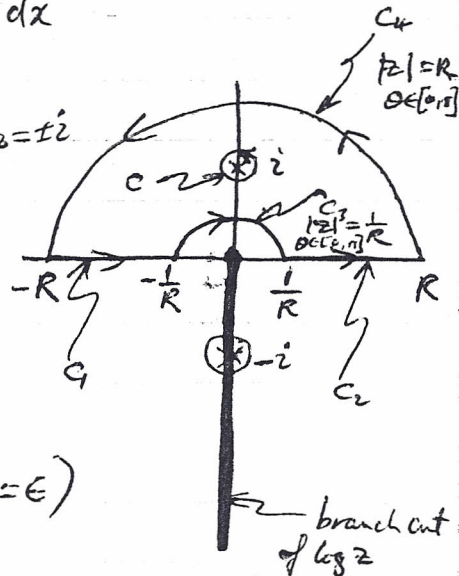 dx
C₄
|z|=R
θ∈[0,π]
z₀=±i
C
i
C₃
|z|=1/R
θ∈[0,π]
-R
-1/R
1/R
R
C₁
-i
C₂
=ε)
branch cut
of log z